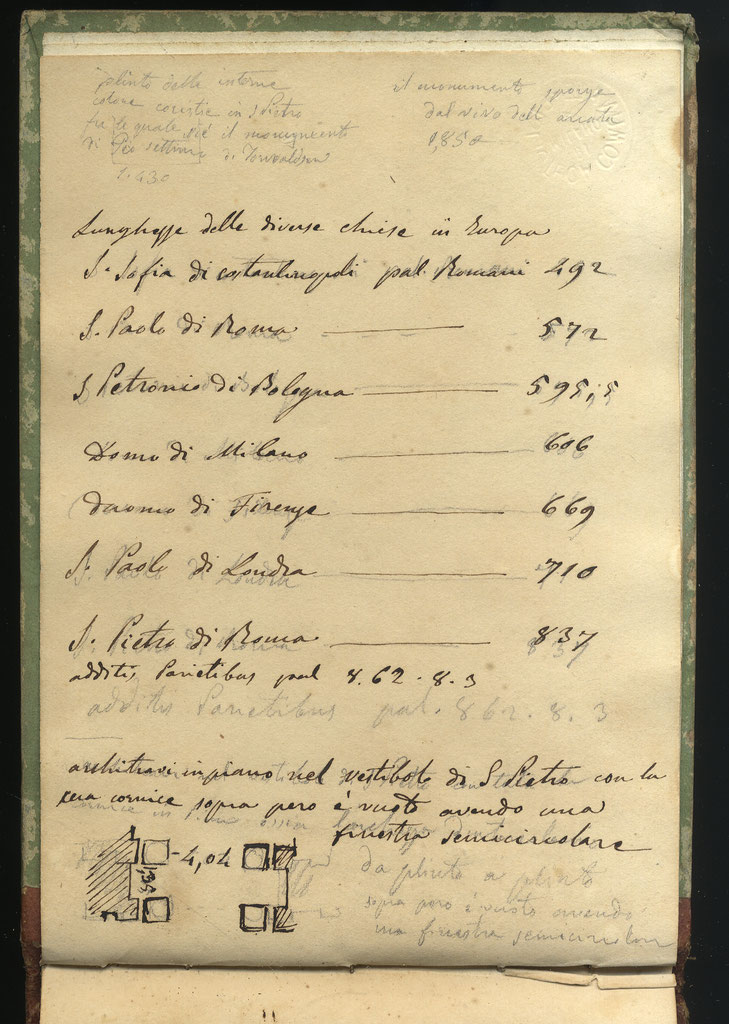 plinto delle interne
colone corestie in S Pietro
fra le quale vi è il monumento
di Pio settimo di Torvaldsen
1.430
il monumento sporge
dal vivo dell arcata
0,850
Lunghesse delle diverse chiese in Europa
S. Sofia di costantinopoli pal. Romani 492
S. Paolo di Roma 572
S Petronio di Bologna 595,5
Domo di Milano 606
Duomo di Firenze 669
S. Paolo di Londra 710
S. Pietro di Roma 837
additis Parietibus pal 8.62.8.3
additis Parietibus pal. 862.8.3
architravi in piano nel vestibolo di S Pietro con la
sua cornice sopra pero è vuoto avendo una
finestra semicircolare
4,04
1,35
da plinto a plinto
sopra pero è vuoto avendo
una finestra semicircolare